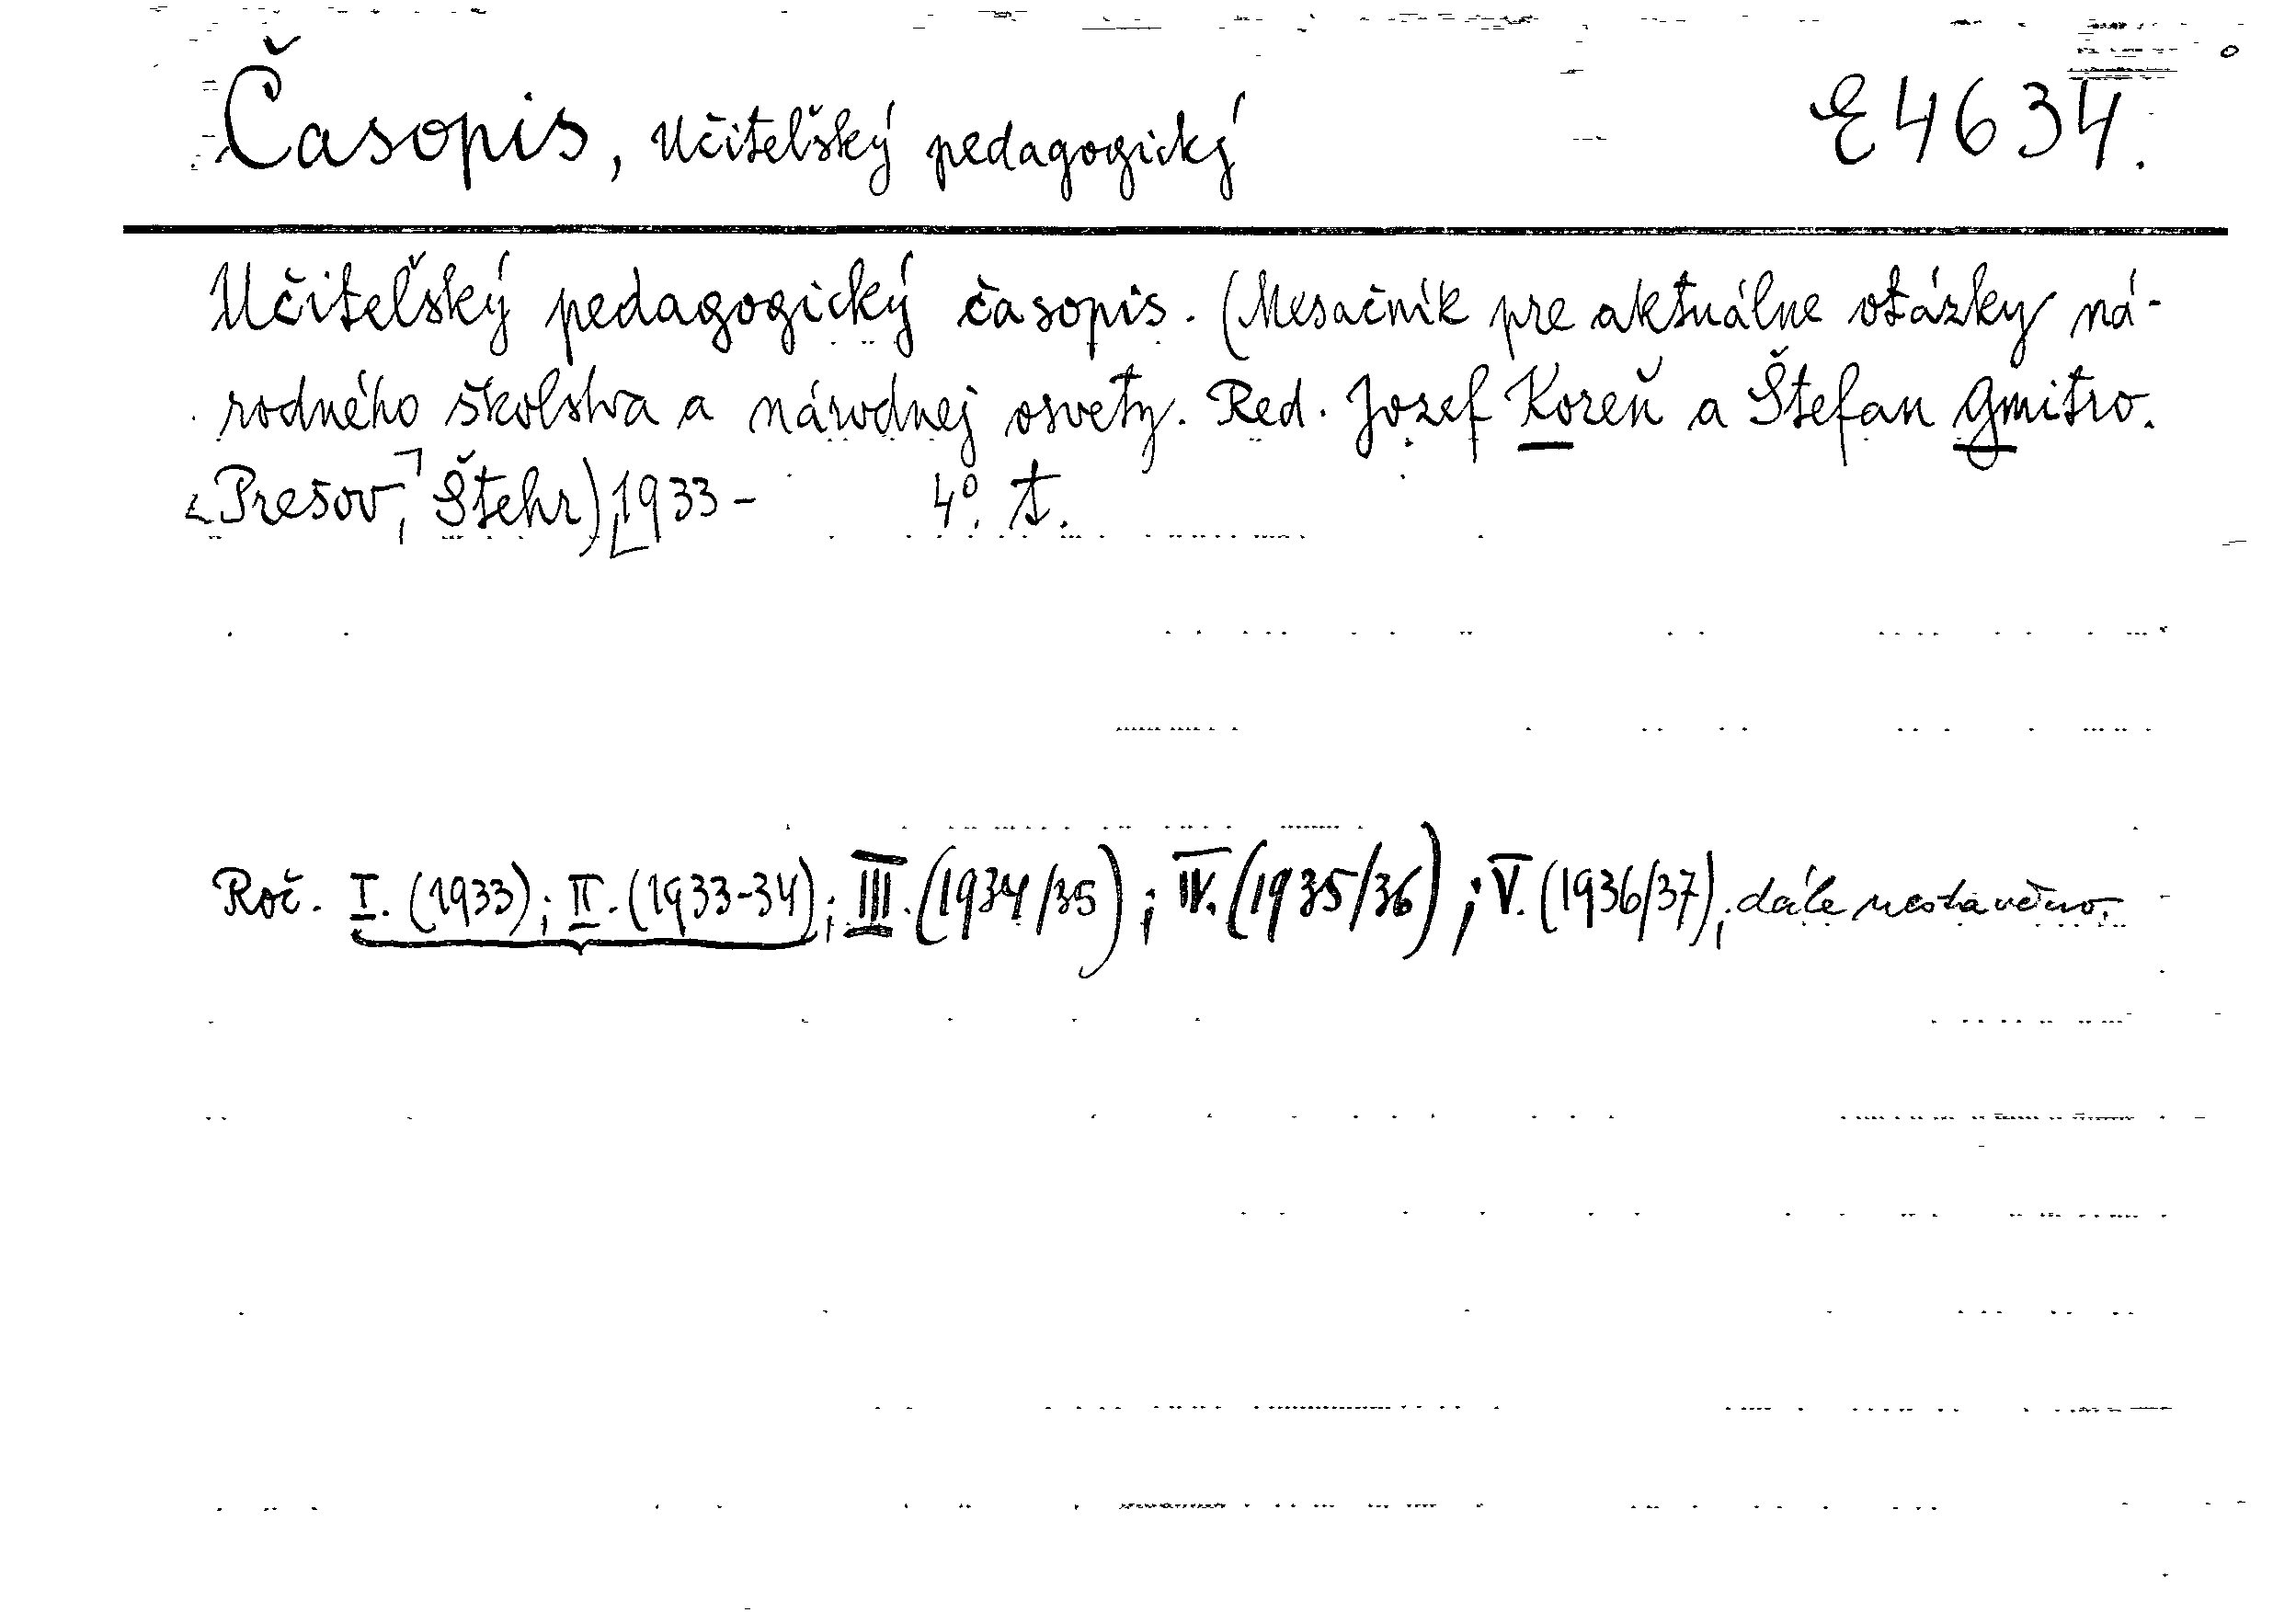 Časopis, Učiteľský pedagogický E 4634.
Učiteľský pedagogický časopis. (Mesačník pre aktuálne otázky ná-
rodného školstva a národnej osvety. Red. Jozef Koreň a Štefan Gmitro.
Prešov, Štehr), 1933 - 4°. t.
Roč. I. (1933); II. (1933-34); III. (1934/35); IV. (1935/36); V. (1936/37), dále nestavěno.